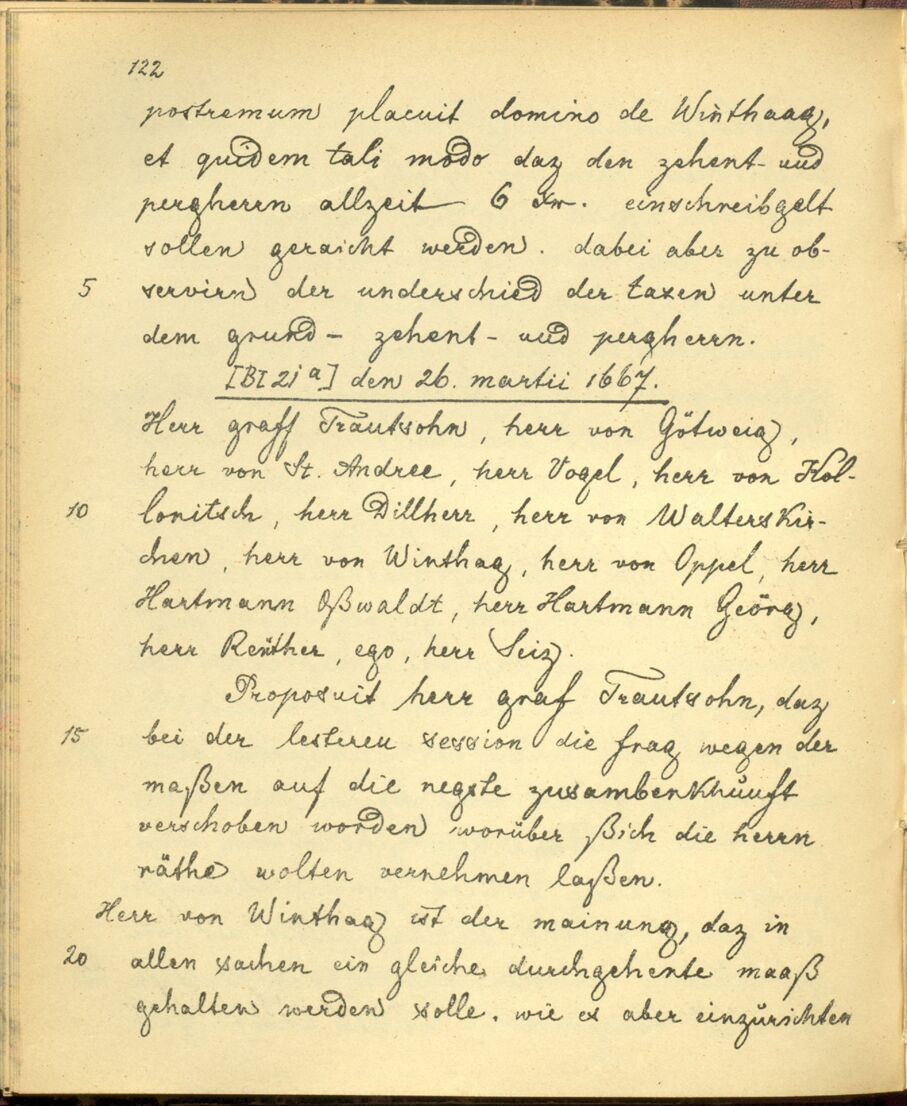 122
postremum placuit domino de Winthaag,
et quidem tali modo daz den zehent- und
pergherrn allzeit 6 xr. einschreibgelt
sollen geraicht werden. dabei aber zu ob-
5 servirn der underschied der taxen unter
dem grund- zehent- und pergherrn.
[BI 21a] den 26. martii 1667.
Herr graff Trautsohn, herr von Götweig,
herr von St. Andree, herr Vogel, herr von Kol-
10 lonitsch, herr Dillherr, herr von Walterskir-
chen, herr von Winthag, herr von Oppel, herr
Hartmann Oßwaldt, herr Hartmann Geörg,
herr Reüther, ego, herr Seiz.
Proposuit herr graf Trautsohn, daz
15 bei der lesteren session die frag wegen der
maßen auf die negste zusambenkhunft
verschoben worden worüber ßich die herrn
räthe wolten vernehmen laßen.
Herr von Winthag ist der mainung, daz in
20 allen sachen ein gleiche durchgehente maaß
gehalten werden solle. wie es aber einzurichten